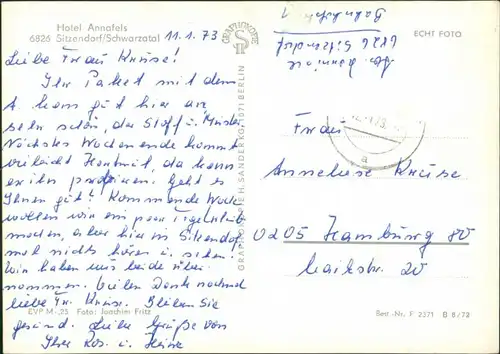 Hotel Annafels
6826 Sitzendorf/Schwarzatal
11.1.73
Liebe Frau Kruse!
Ihr Paket mit dem
A. kam gut hier an
sehr schön, der Stoff u. Muster
Nächstes Wochenende kommt
vielleicht Hartmut, da kann
er ihn probieren. Geht es
Ihnen gut? Kommende Woche
wollen wir ein paar Tg. Urlaub
machen, aber hier in Sitzendorf
mal nichts hören u. sehen.
Wir haben uns beide über-
nommen. Vielen Dank nochmal
liebe Fr. Kruse. Bleiben Sie
gesund. Liebe Grüße von
Ihrer Ros. u. Heinz
EVP M -,25 Foto: Joachim Fritz
GRAPHOKOPIE
GRAPHOKOPIE H. SANDER KG, 1071 BERLIN
ECHT FOTO
6826 Sitzendorf
Bahnhofstr. 1
Frau
Anneliese Kruse
a
0205 Hamburg 80
20
Best.-Nr. F 2371 B 8/72